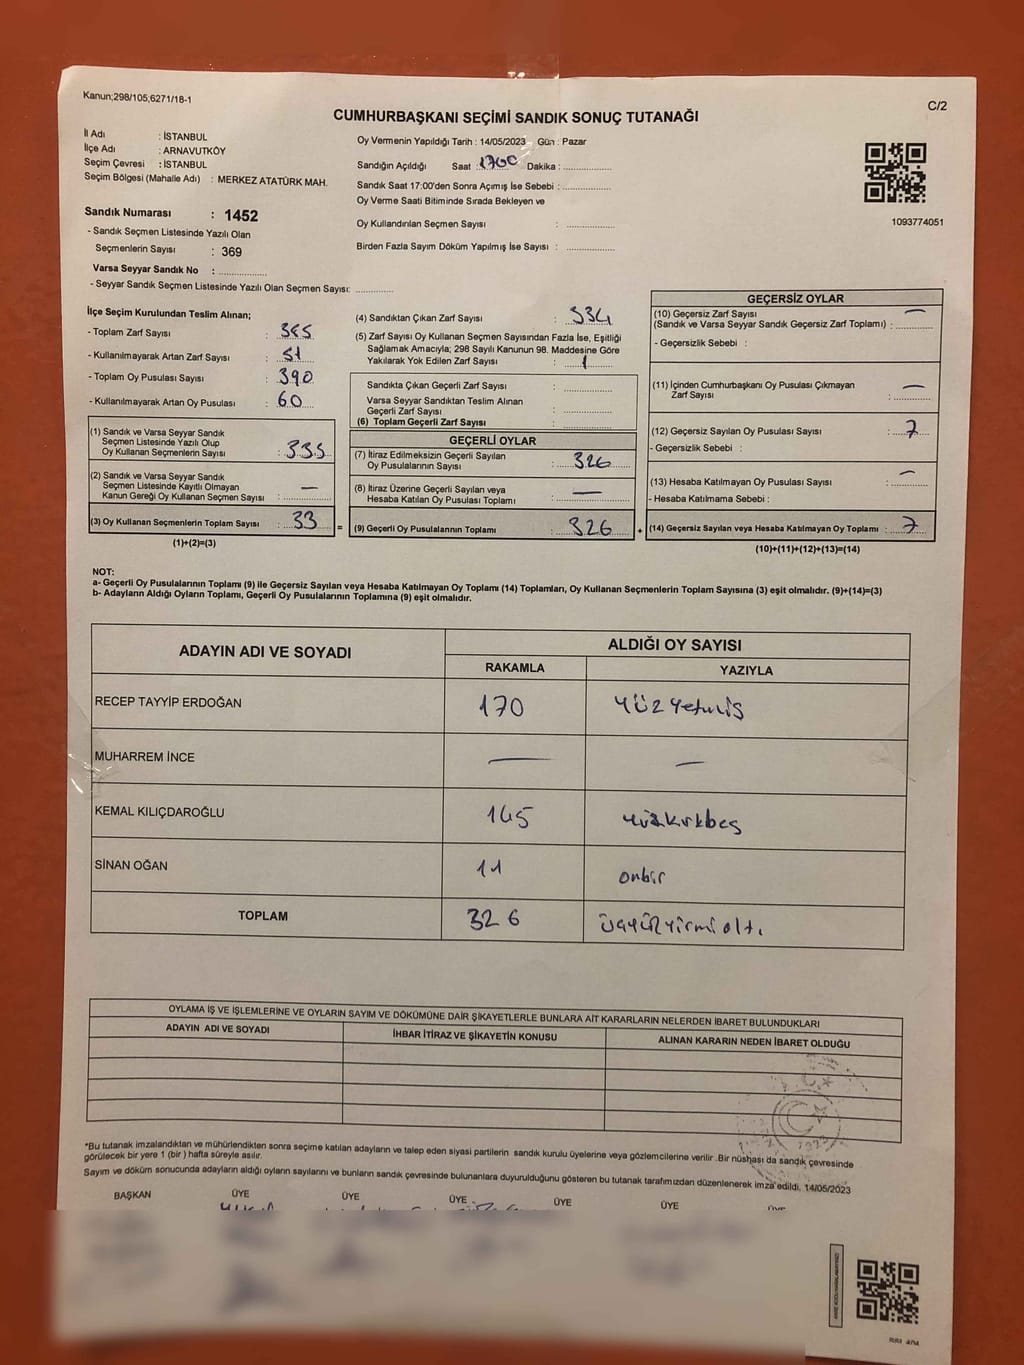 Kanun;298/105;6271/18-1
C/2
CUMHURBAŞKANI SEÇİMİ SANDIK SONUÇ TUTANAĞI
İl Adı : İSTANBUL
İlçe Adı : ARNAVUTKÖY
Seçim Çevresi : İSTANBUL
Seçim Bölgesi (Mahalle Adı) : MERKEZ ATATÜRK MAH.
Sandık Numarası : 1452
- Sandık Seçmen Listesinde Yazılı Olan
Seçmenlerin Sayısı : 369
Varsa Seyyar Sandık No : ..................
- Seyyar Sandık Seçmen Listesinde Yazılı Olan Seçmen Sayısı: ..............
Oy Vermenin Yapıldığı Tarih : 14/05/2023 - Gün : Pazar
Sandığın Açıldığı Saat 1700 Dakika : ..................
Sandık Saat 17:00'den Sonra Açımış İse Sebebi : ..................
Oy Verme Saati Bitiminde Sırada Bekleyen ve
Oy Kullandırılan Seçmen Sayısı : ..................
Birden Fazla Sayım Döküm Yapılmış İse Sayısı : ..................
1093774051
İlçe Seçim Kurulundan Teslim Alınan;
- Toplam Zarf Sayısı : 385
- Kullanılmayarak Artan Zarf Sayısı : 51
- Toplam Oy Pusulası Sayısı : 390
- Kullanılmayarak Artan Oy Pusulası : 60
(1) Sandık ve Varsa Seyyar Sandık
Seçmen Listesinde Yazılı Olup
Oy Kullanan Seçmenlerin Sayısı : 335
(2) Sandık ve Varsa Seyyar Sandık
Seçmen Listesinde Kayıtlı Olmayan
Kanun Gereği Oy Kullanan Seçmen Sayısı : —
(3) Oy Kullanan Seçmenlerin Toplam Sayısı : 33 =
(1)+(2)=(3)
(4) Sandıktan Çıkan Zarf Sayısı : 334
(5) Zarf Sayısı Oy Kullanan Seçmen Sayısından Fazla İse, Eşitliği
Sağlamak Amacıyla; 298 Sayılı Kanunun 98. Maddesine Göre
Yakılarak Yok Edilen Zarf Sayısı : 1
Sandıkta Çıkan Geçerli Zarf Sayısı : ..................
Varsa Seyyar Sandıktan Teslim Alınan
Geçerli Zarf Sayısı : ..................
(6) Toplam Geçerli Zarf Sayısı : ..................
GEÇERLİ OYLAR
(7) İtiraz Edilmeksizin Geçerli Sayılan
Oy Pusulalarının Sayısı : 326
(8) İtiraz Üzerine Geçerli Sayılan veya
Hesaba Katılan Oy Pusulası Toplamı : —
(9) Geçerli Oy Pusulalarının Toplamı : 326 +
GEÇERSİZ OYLAR
(10) Geçersiz Zarf Sayısı —
(Sandık ve Varsa Seyyar Sandık Geçersiz Zarf Toplamı) : ............
- Geçersizlik Sebebi :
(11) İçinden Cumhurbaşkanı Oy Pusulası Çıkmayan —
Zarf Sayısı : ............
(12) Geçersiz Sayılan Oy Pusulası Sayısı : 7
- Geçersizlik Sebebi :
(13) Hesaba Katılmayan Oy Pusulası Sayısı : —
- Hesaba Katılmama Sebebi :
(14) Geçersiz Sayılan veya Hesaba Katılmayan Oy Toplamı : 7
(10)+(11)+(12)+(13)=(14)
NOT:
a- Geçerli Oy Pusulalarının Toplamı (9) ile Geçersiz Sayılan veya Hesaba Katılmayan Oy Toplamı (14) Toplamları, Oy Kullanan Seçmenlerin Toplam Sayısına (3) eşit olmalıdır. (9)+(14)=(3)
b- Adayların Aldığı Oyların Toplamı, Geçerli Oy Pusulalarının Toplamına (9) eşit olmalıdır.
ADAYIN ADI VE SOYADI
ALDIĞI OY SAYISI
RAKAMLA YAZIYLA
RECEP TAYYİP ERDOĞAN 170 yüzyetmiş
MUHARREM İNCE — —
KEMAL KILIÇDAROĞLU 145 yüzkırkbeş
SİNAN OĞAN 11 onbir
TOPLAM 326 üçyüzyirmialtı
OYLAMA İŞ VE İŞLEMLERİNE VE OYLARIN SAYIM VE DÖKÜMÜNE DAİR ŞİKAYETLERLE BUNLARA AİT KARARLARIN NELERDEN İBARET BULUNDUKLARI
ADAYIN ADI VE SOYADI
İHBAR İTİRAZ VE ŞİKAYETİN KONUSU
ALINAN KARARIN NEDEN İBARET OLDUĞU
*Bu tutanak imzalandıktan ve mühürlendikten sonra seçime katılan adayların ve talep eden siyasi partilerin sandık kurulu üyelerine veya gözlemcilerine verilir .Bir nüshası da sandık çevresinde
görülecek bir yere 1 (bir ) hafta süreyle asılır.
Sayım ve döküm sonucunda adayların aldığı oyların sayılarını ve bunların sandık çevresinde bulunanlara duyurulduğunu gösteren bu tutanak tarafımızdan düzenlenerek imza edildi, 14/05/2023
BAŞKAN ÜYE ÜYE ÜYE ÜYE ÜYE